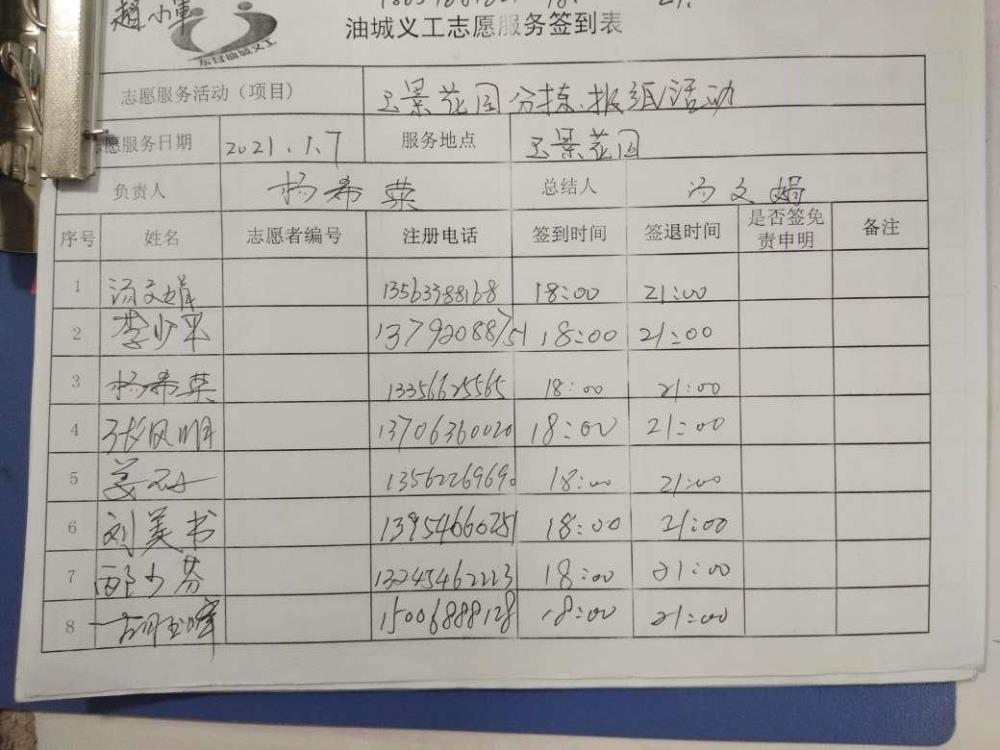 趙小軍
油城义工志愿服务签到表
东营油城义工
志愿服务活动（项目） 玉景花园分拣.报纸活动
愿服务日期 2021.1.7 服务地点 玉景花园
负责人 杨希英 总结人 汤文娟
序号 姓名 志愿者编号 注册电话 签到时间 签退时间 是否签免责申明 备注
1 汤文娟 18:00 21:00
2 李少平 13792088751 18:00 21:00
3 杨希英 13356625565 18:00 21:00
4 张凤明 13706360020 18:00 21:00
5 姜 13562269690 18:00 21:00
6 刘美书 13954660251 18:00 21:00
7 邵少芬 13245462223 18:00 21:00
8 胡玉峰 15006888128 18:00 21:00